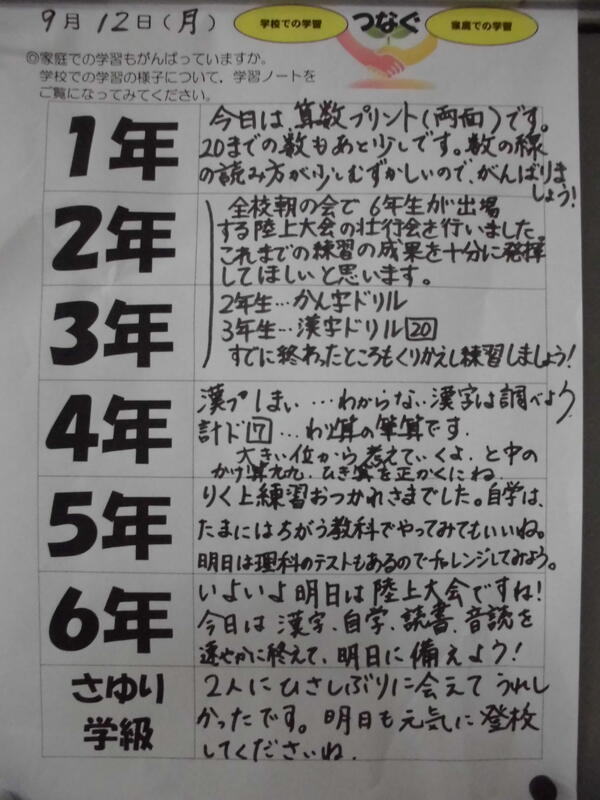 9月12日(月)
学校での学習
つなぐ
家庭での学習
◎家庭での学習もがんばっていますか。
学校での学習の様子について,学習ノートを
ご覧になってみてください。
1年
今日は算数プリント(両面)です。
20までの数もあと少しです。数の線
の読み方が少しむずかしいので、がんばりま
しょう!
2年
3年
全校朝の会で6年生が出場
する陸上大会の壮行会を行いました。
これまでの練習の成果を十分に発揮
してほしいと思います。
2年生…かん字ドリル
3年生…漢字ドリル20
すでに終わったところもくりかえし練習しましょう!
4年
漢プしまい…わからない漢字は調べよう
計ド7…わり算の筆算です.
大きい位から考えていくよ.と中の
かけ算九九、ひき算を正かくにね.
5年
りく上練習おつかれさまでした。自学は、
たまにはちがう教科でやってみてもいいね。
明日は理科のテストもあるのでチャレンジしてみよう。
6年
いよいよ明日は陸上大会ですね!
今日は漢字、自学、読書、音読を
速やかに終えて、明日に備えよう!
さゆり
学級
2人にひさしぶりに会えてうれし
かったです。明日も元気に登校
してくださいね.